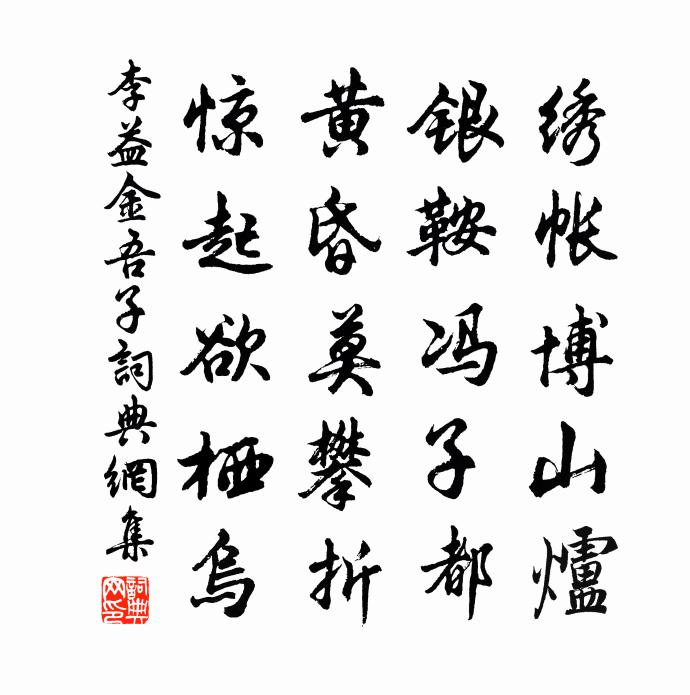 绣帐博山爐
银鞍冯子都
黄昏莫攀折
惊起欲栖乌
李益金吾子詞典網集
詞典网印